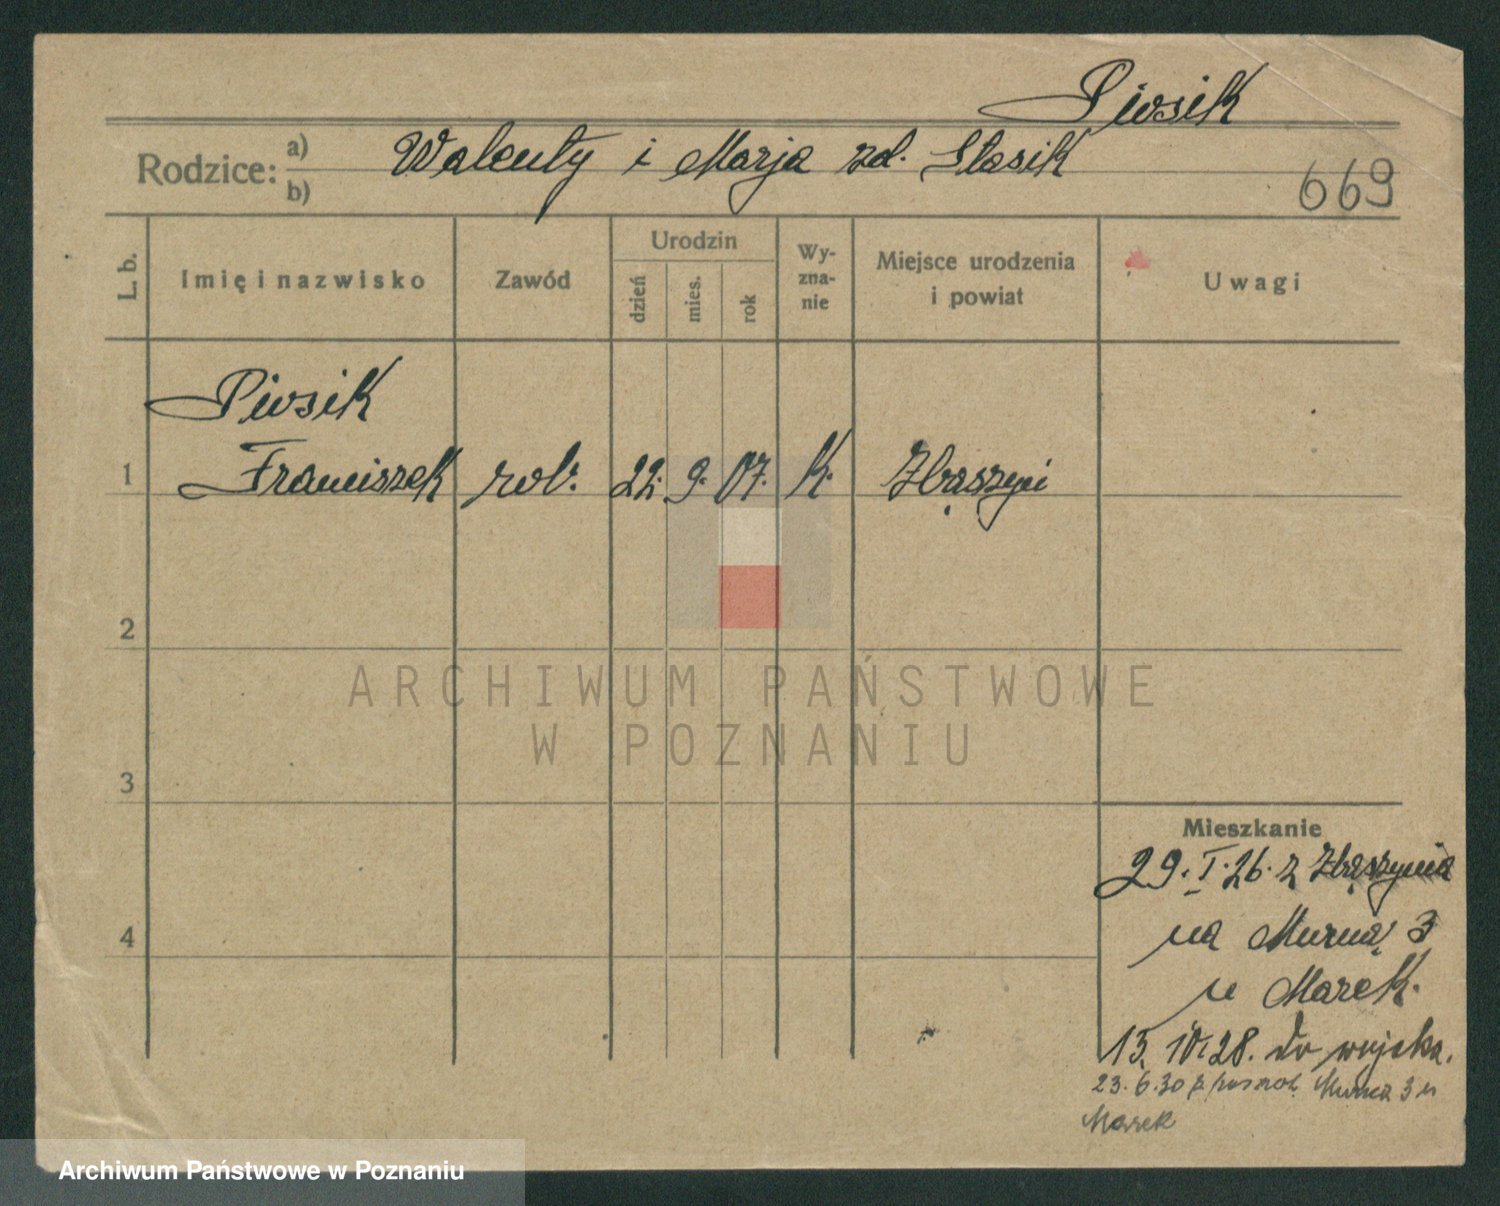 Piosik
Rodzice: a) Walenty i Marja zd. Stasik
b)
669
L. b.
Imię i nazwisko
Zawód
Urodzin
dzień
mies.
rok
Wy-
zna-
nie
Miejsce urodzenia
i powiat
Uwagi
Piosik
1 Franciszek rob. 22. 9. 07. K. Zbąszyń
2
3
4
ARCHIWUM PAŃSTWOWE
W POZNANIU
Mieszkanie
29. I. 26. z Zbąszynia
na Murną 3
u Marek.
15. 10. 28. do wojska.
23. 6. 30 z Murna 3 u
Marek
Archiwum Państwowe w Poznaniu